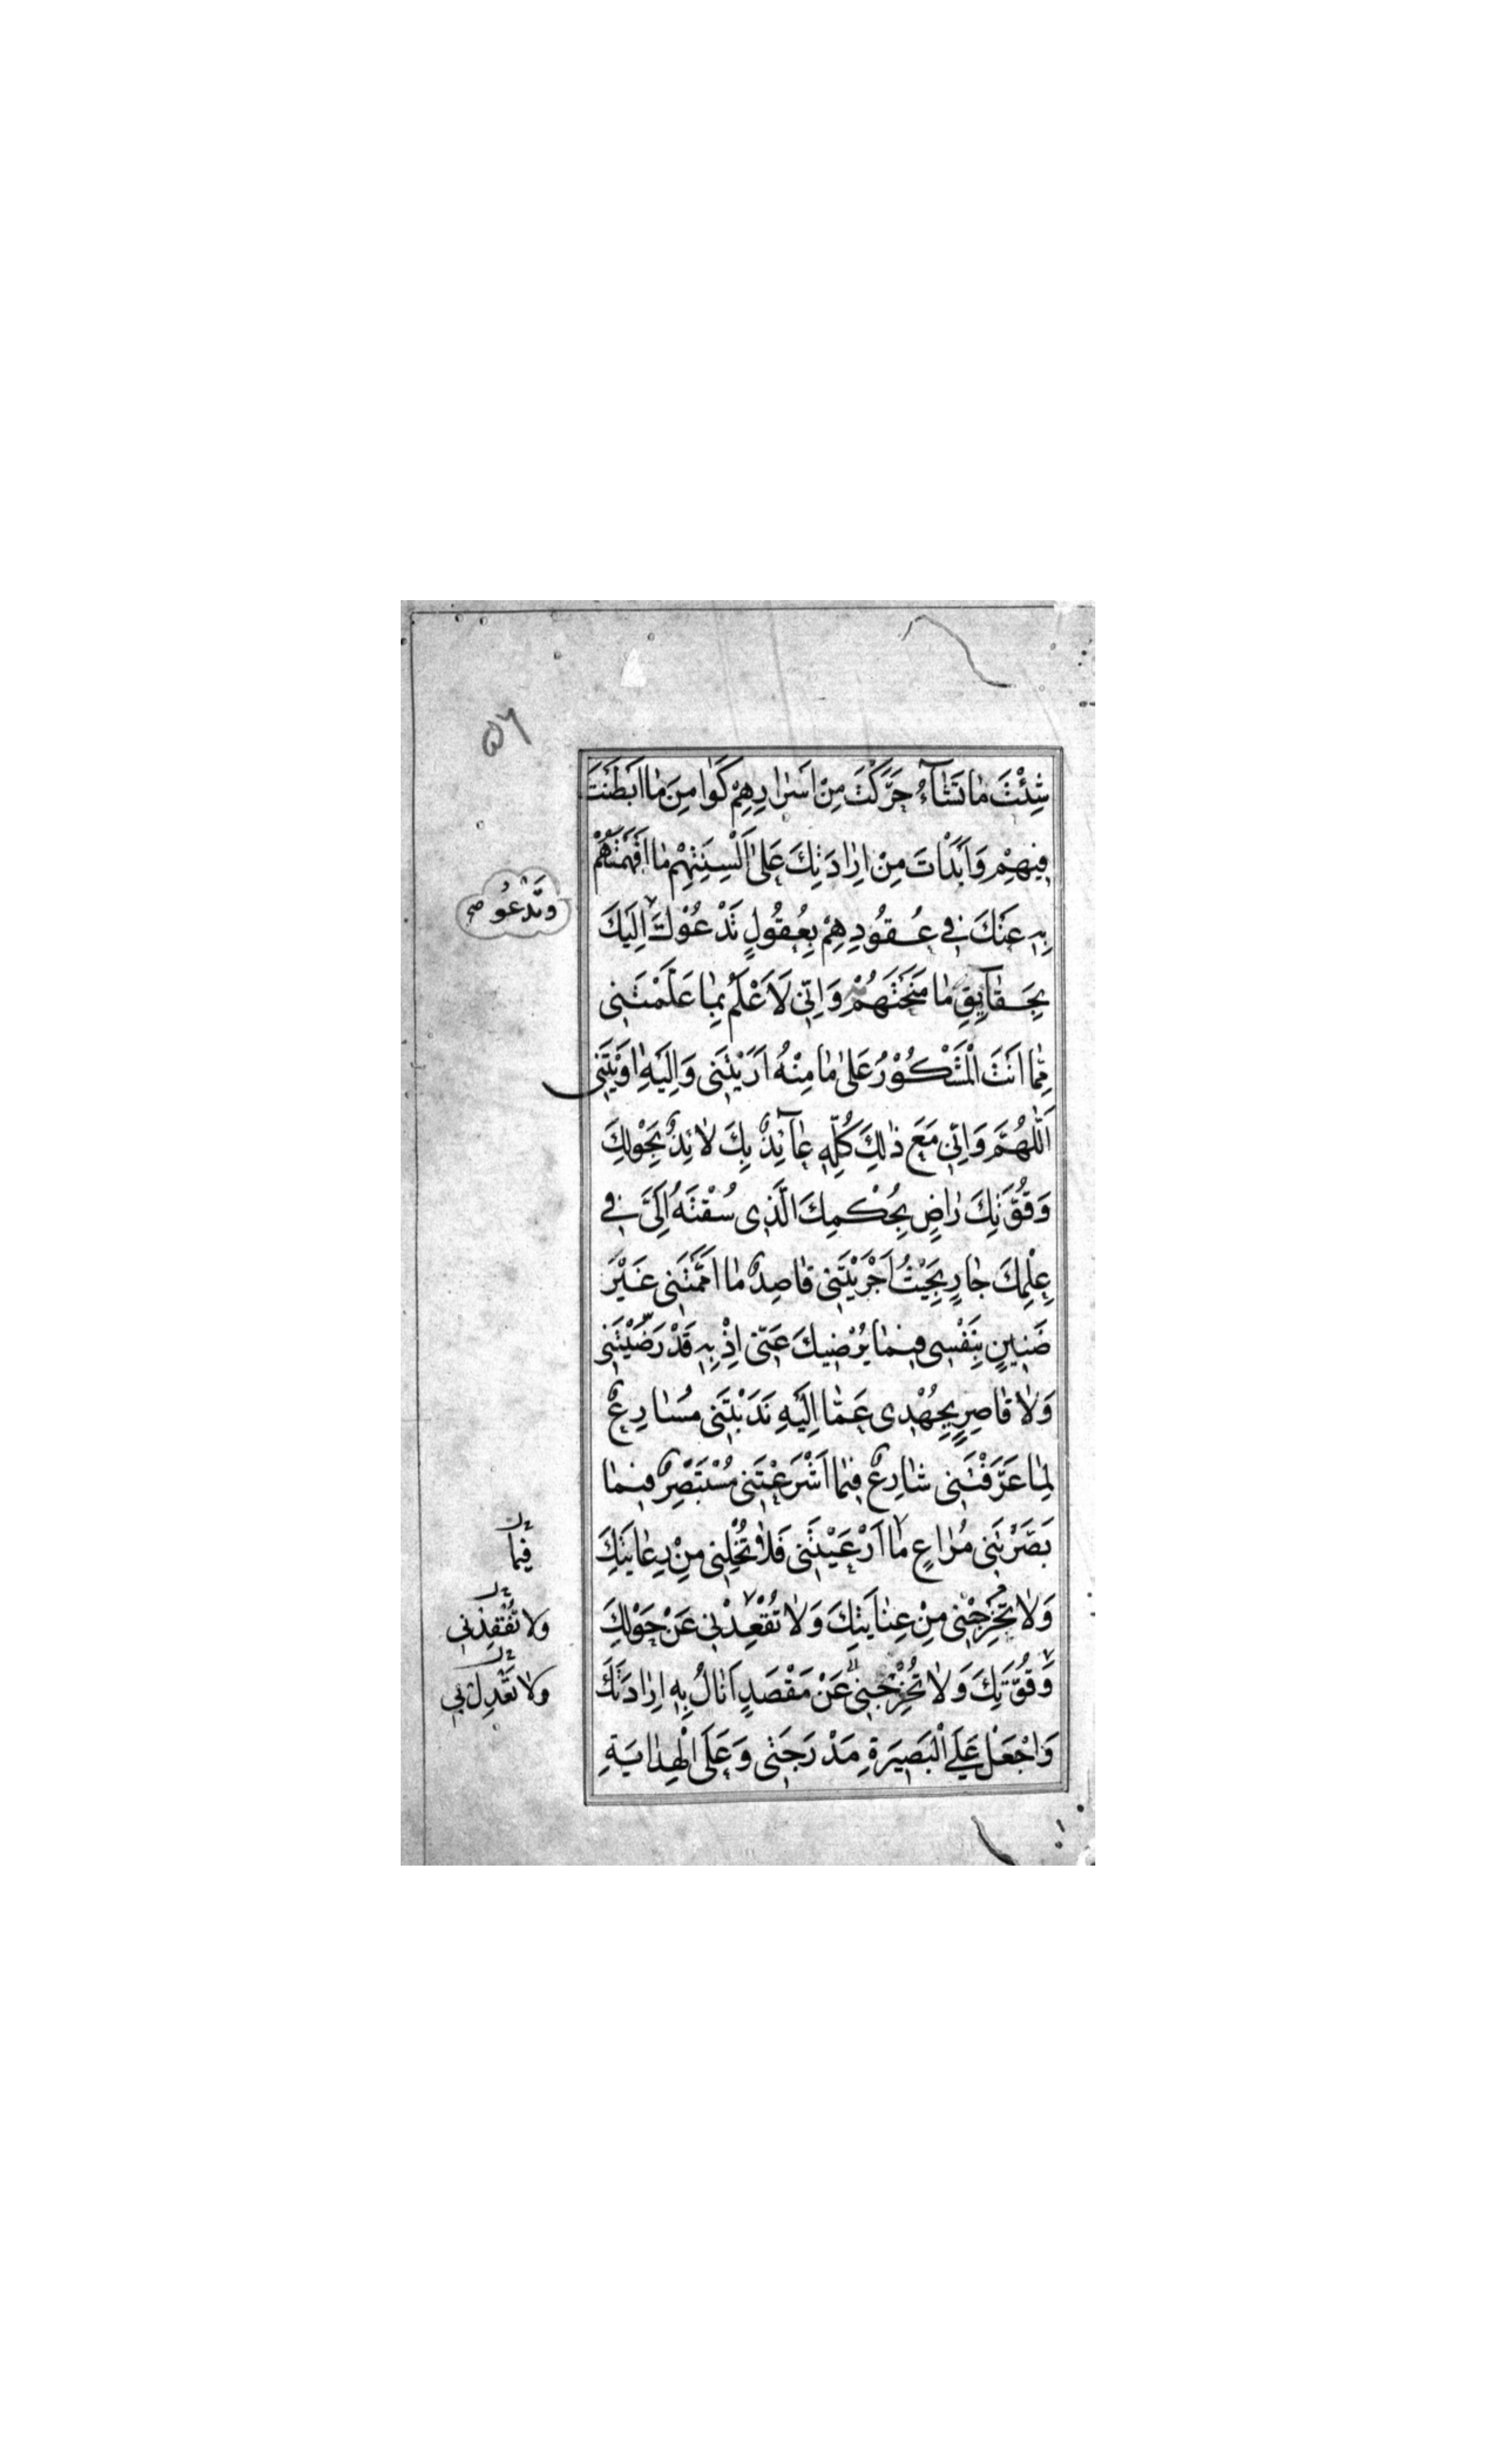 ۵۶
شِئْتَ مٰا تَشٰآءُ حَرَّكْتَ مِنْ اَسْرٰارِهِمْ كَوٰامِنَ مٰا اَبْطَنْتَ
فِيهِمْ وَاَبْدَأْتَ مِنْ اِرٰادَتِكَ عَلىٰ اَلْسِنَتِهِمْ مٰا اَفْهَمْتَهُمْ
بِهِ عَنْكَ فِي عُقُودِهِمْ بِعُقُولٍ تَدْعُوْكَ اِلَيْكَ
وتَدْعُو صح
بِحَقٰآيِقِ مٰا مَنَحْتَهُمْ وَاِنّي لَاَعْلَمُ بِمٰا عَلَّمْتَنى
مِمّٰا اَنْتَ الْمَشْكُوْرُ عَلىٰ مٰا مِنْهُ اَرَيْتَنى وَاِلَيْهِ اٰوَيْتَنى
اَللّٰهُمَّ وَاِنّي مَعَ ذٰلِكَ كُلِّهِ عٰآئِذٌ بِكَ لٰائِذٌ بِحَوْلِكَ
وَقُوَّتِكَ رٰاضٍ بِحُكْمِكَ الَّذى سُقْتَهُ اِلَىَّ في
عِلْمِكَ جٰارٍ بِحَيْثُ اَجْرَيْتَنى قٰاصِدٌ مٰا اَمَّمْتَنى غَيْرَ
ضَنِينٍ بِنَفْسى فِيمٰا يُرْضِيكَ عَنّى اِذْ بِهِ قَدْ رَضَّيْتَنى
وَلٰا قٰاصِرٍ بِجُهْدى عَمّٰا اِلَيْهِ نَدَبْتَنى مُسٰارِعٌ
لِمٰا عَرَّفْتَنى شٰارِعٌ فِيمٰا اَشْرَعْتَنى مُسْتَبْصِرٌ فِيمٰا
بَصَّرْتَنى مُرٰاعٍ مٰا اَرْعَيْتَنى فَلٰا تُخْلِنى مِنْ رِعٰايَتِكَ
فِيما
وَلٰا تُخْرِجْنى مِنْ عِنٰايَتِكَ وَلٰا تُقْعِدْنى عَنْ حَوْلِكَ
ولا تُفْقِدْني
وَقُوَّتِكَ وَلٰا تُخْرِجْنى عَنْ مَقْصَدٍ اَنٰالُ بِهِ اِرٰادَتَكَ
ولا تَعْدِل بي
وَاجْعَلْ عَلَى الْبَصِيرَةِ مَدْرَجَتى وَعَلَى الْهِدٰايَةِ